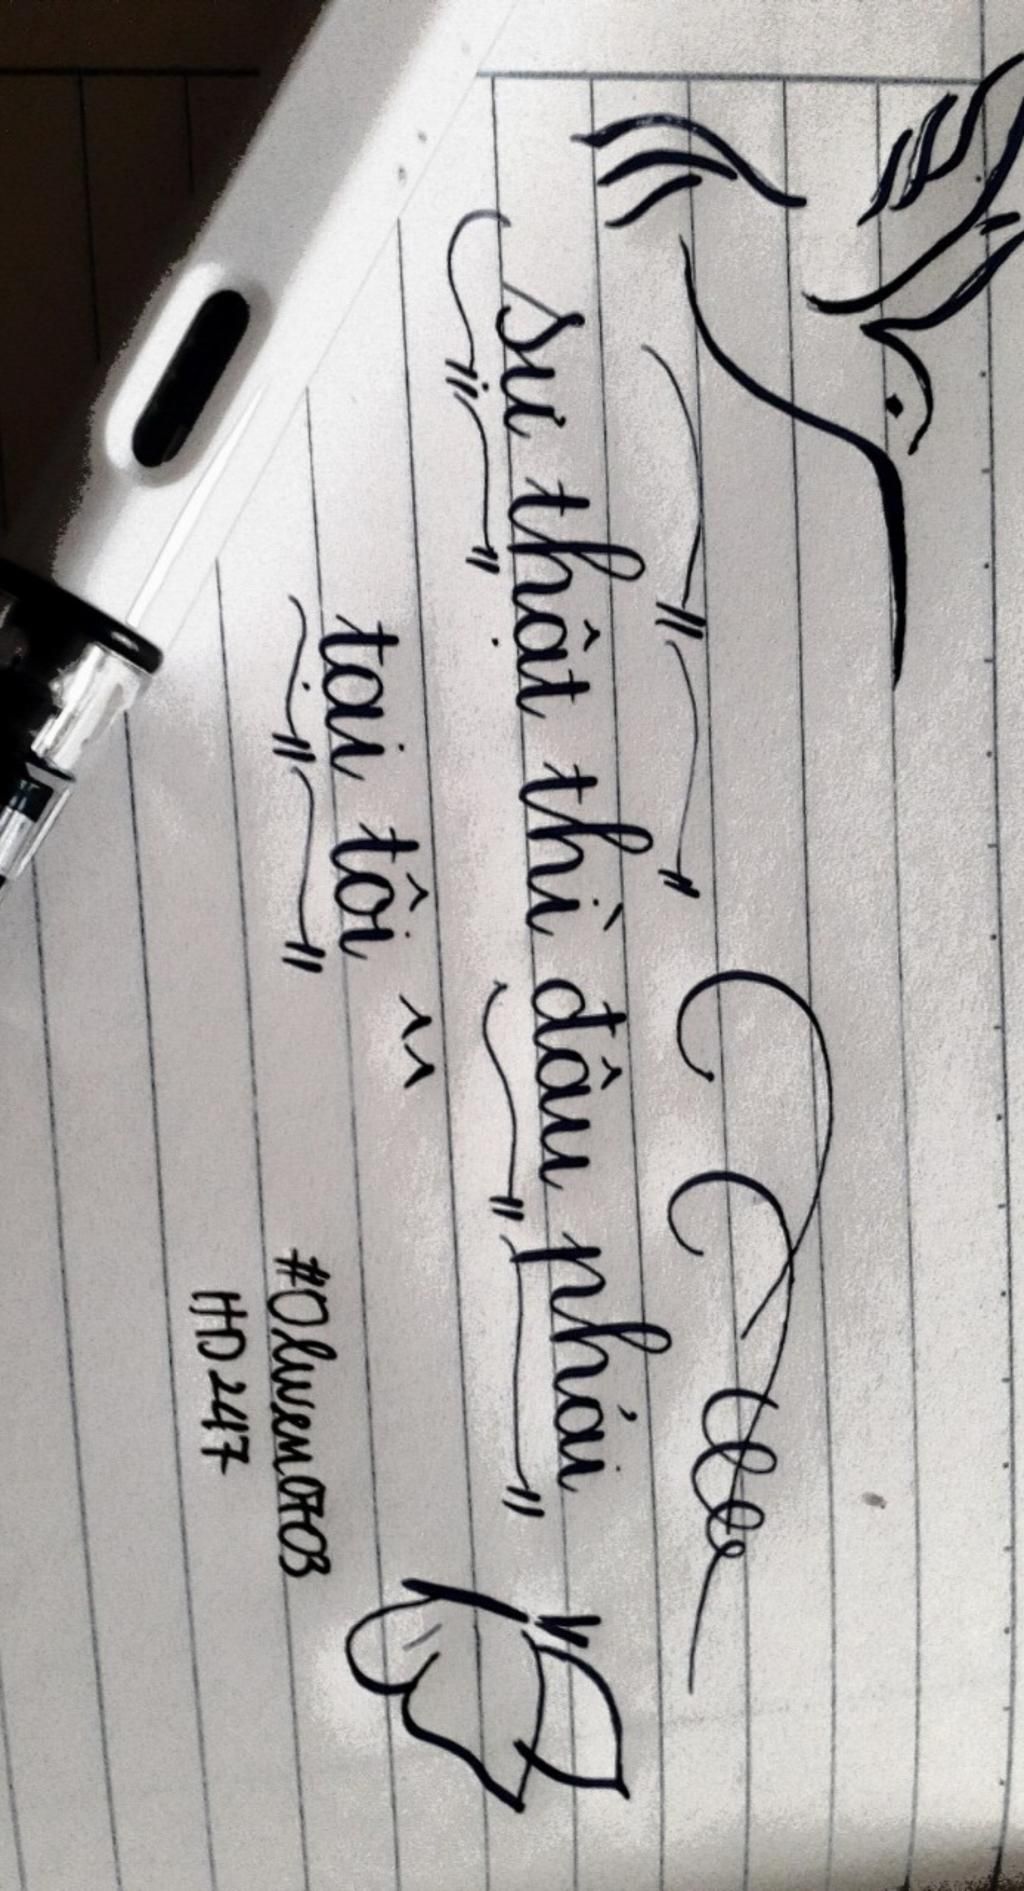 sự thật thì đâu phải
tại tôi ^^
#Oliwen0703
HD247